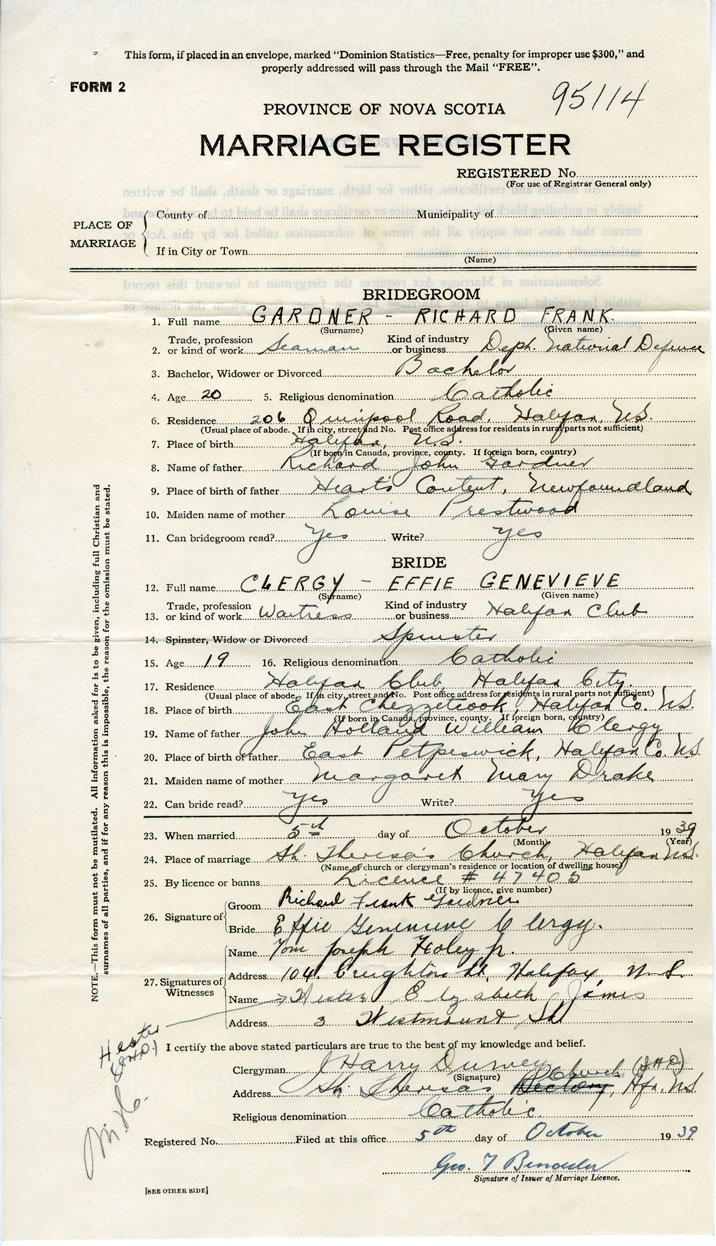 This form, if placed in an envelope, marked "Dominion Statistics—Free, penalty for improper use $300," and
properly addressed will pass through the Mail "FREE".
FORM 2
95114
PROVINCE OF NOVA SCOTIA
MARRIAGE REGISTER
REGISTERED No.
(For use of Registrar General only)
PLACE OF MARRIAGE
County of Municipality of
If in City or Town
(Name)
BRIDEGROOM
1. Full name GARDNER - RICHARD FRANK.
(Surname) (Given name)
2. Trade, profession or kind of work Seaman Kind of industry or business Dept. National Defence
3. Bachelor, Widower or Divorced Bachelor
4. Age 20 5. Religious denomination Catholic
6. Residence 206 Quinpool Road, Halifax, N.S.
(Usual place of abode. If in city, street and No. Post office address for residents in rural parts not sufficient)
7. Place of birth Halifax, N.S.
(If born in Canada, province, county. If foreign born, country)
8. Name of father Richard John Gardner
9. Place of birth of father Heart's Content, Newfoundland
10. Maiden name of mother Louise Prestwood
11. Can bridegroom read? Yes Write? Yes
BRIDE
12. Full name CLERGY - EFFIE GENEVIEVE
(Surname) (Given name)
13. Trade, profession or kind of work Waitress Kind of industry or business Halifax Club
14. Spinster, Widow or Divorced Spinster
15. Age 19 16. Religious denomination Catholic
17. Residence Halifax Club, Halifax City.
(Usual place of abode. If in city, street and No. Post office address for residents in rural parts not sufficient)
18. Place of birth East Chezzetcook, Halifax Co. N.S.
(If born in Canada, province, county. If foreign born, country)
19. Name of father John Holland William Clergy
20. Place of birth of father East Petpeswick, Halifax Co. N.S.
21. Maiden name of mother Margaret Mary Drake
22. Can bride read? Yes Write? Yes
23. When married 5th day of October 1939
(Month) (Year)
24. Place of marriage St. Theresa's Church, Halifax N.S.
(Name of church or clergyman's residence or location of dwelling house)
25. By licence or banns Licence # 47405
(If by licence, give number)
26. Signature of
Groom Richard Frank Gardner
Bride Effie Genevieve Clergy.
27. Signatures of Witnesses
Name Tom Joseph Foley jr.
Address 104 Creighton St, Halifax N.S.
Name Hester Elizabeth James
Address 3 Westmount St
Hester
(JHD)
I certify the above stated particulars are true to the best of my knowledge and belief.
Clergyman J Harry Durney
(Signature)
Address St. Theresas Rectory Church (JHD), Hfx. N.S
Religious denomination Catholic
Registered No. Filed at this office 5th day of October 1939
Signature of Issuer of Marriage Licence.
[SEE OTHER SIDE]
NOTE.—This form must not be mutilated. All Information asked for is to be given, including full Christian and
surnames of all parties, and if for any reason this is impossible, the reason for the omission must be stated.